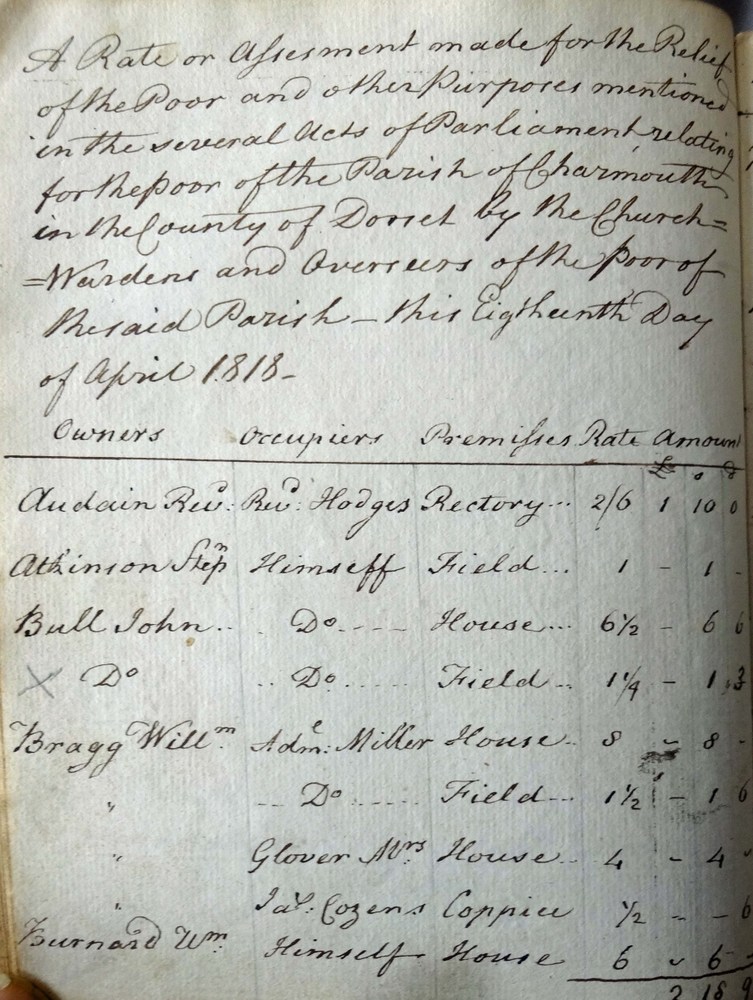 A Rate or Assesment made for the Relief
of the Poor and other Purposes mentioned
in the several Acts of Parliament relating
for the poor of the Parish of Charmouth
in the County of Dorset by the Church=
=Wardens and Overseers of the poor of
the said Parish – this Eigtheenth Day
of April 1818–
Owners Occupiers Premisses Rate Amount
Audain Revd: Revd: Hodges Rectory... 2/6 1 10 0
Atkinson Stepn Himself Field... 1 – 1 –
Bull John.. .. Do.---- House... 6½ – 6 6
X Do .. Do...... Field... 1¼ – 1 3
Bragg Willm Adml: Miller House.. 8 – 8 –
" -- Do...... Field... 1½ – 1 6
" Glover Mrs House.. 4 – 4 –
" Jas: Cozens Coppice ½ – – 6
Burnard Wm: Himself House 6 – 6 –
2 18 9